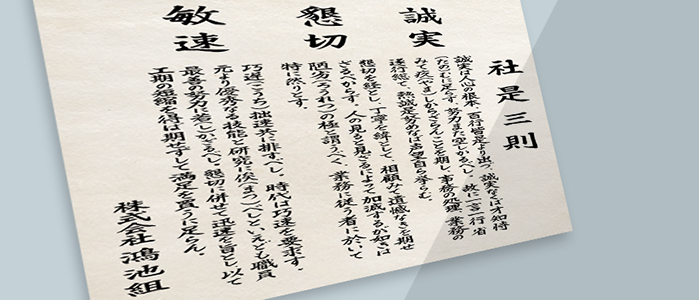 社是三則
誠実
誠実は人心の根本、百行皆是より出づ。誠実なくば才知待
(たの)むに足らず、努力また空しかるべし。故に一言一行省
みて疚(やま)しからざらんことを期し、事務の処理、業務の
遂行総て、熱誠努めなば声望自ら挙らむ。
懇切
懇切を経とし、丁寧を緯として、相顧みて遺憾なきを期せ
ざるべからず。人の見ると見ざるによって加減するが如きは
陋劣(ろうれつ)の極と謂うべく、業務に従う者に於いて
特に然りとす。
敏速
巧遅(こうち)拙速共に排すべし。時代は巧速を要求す。
元より優秀なる技能と研究に俟(ま)つべしといえども職員
最善の努力に若しかざるべし。懇切に併せて迅速を旨とし以て
工期の短縮を得ば期せずして満足を買うに足らん。
株式会社 鴻池組